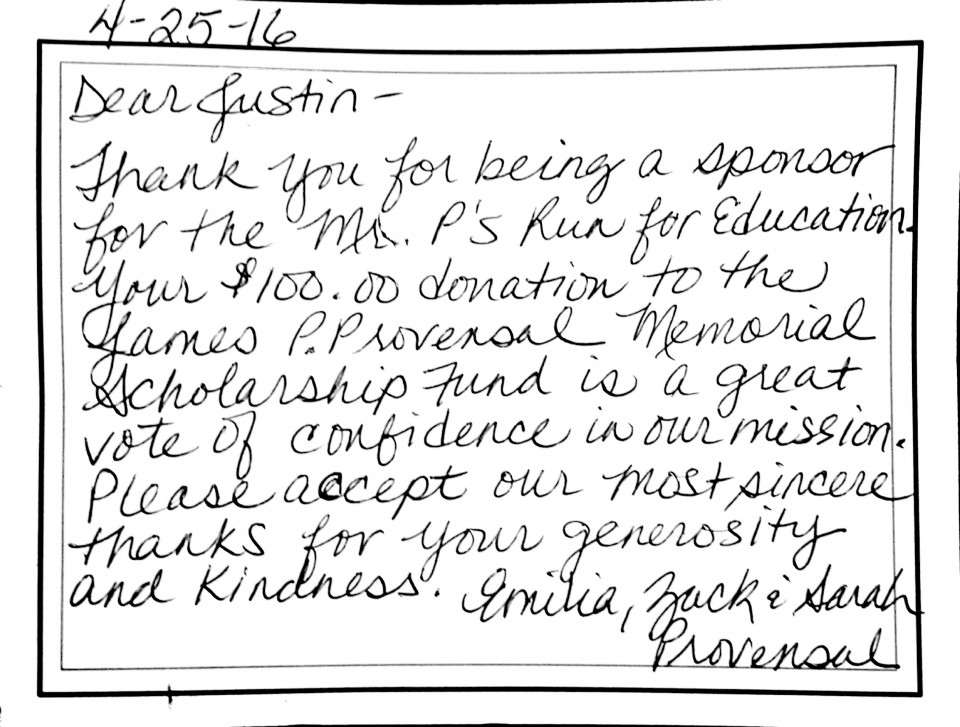 4-25-16
Dear Justin-
Thank you for being a sponsor
for the Mr. P's Run for Education.
Your $100.00 donation to the
James P. Provensal Memorial
Scholarship Fund is a great
vote of confidence in our mission.
Please accept our most sincere
thanks for your generosity
and kindness. Emilia, Zack & Sarah
Provensal